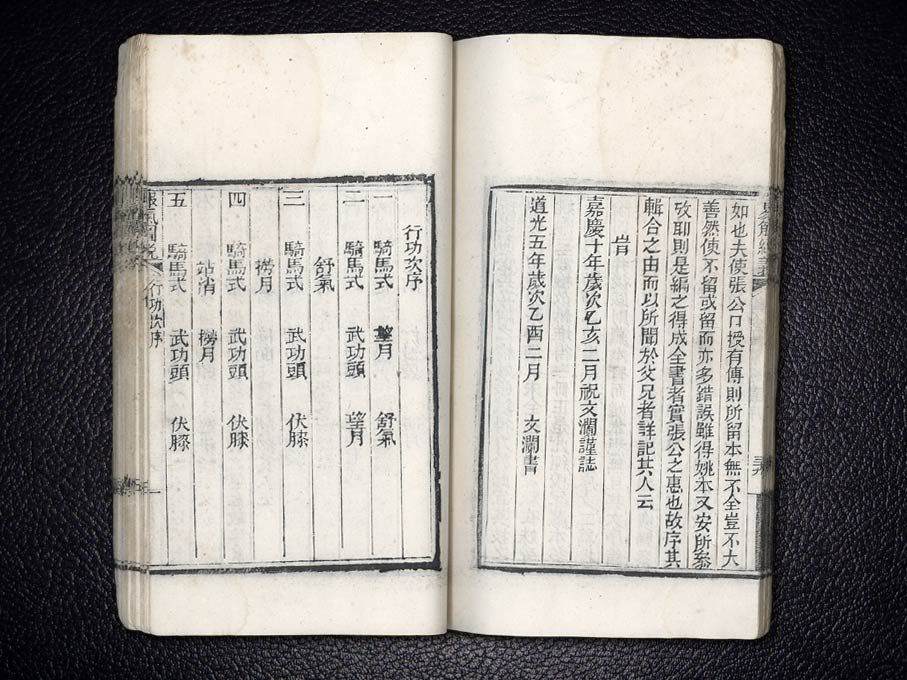 如也夫使張公口授有傳則所留本無不全豈不大
善然使不留或留而亦多錯誤雖得姚本又安所叅
攷耶則是編之得成全書者實張公之惠也故序其
輯合之由而以所聞於父兄者詳記其人云
旹
嘉慶十年歲次乙亥二月祝文瀾謹誌
道光五年歲次乙酉二月 文瀾書
行功次序
一 騎馬式 望月 舒氣
二 騎馬式 武功頭 望月
舒氣
三 騎馬式 武功頭 伏膝
撈月
四 騎馬式 武功頭 伏膝
站消 撈月
五 騎馬式 武功頭 伏膝
行功次序